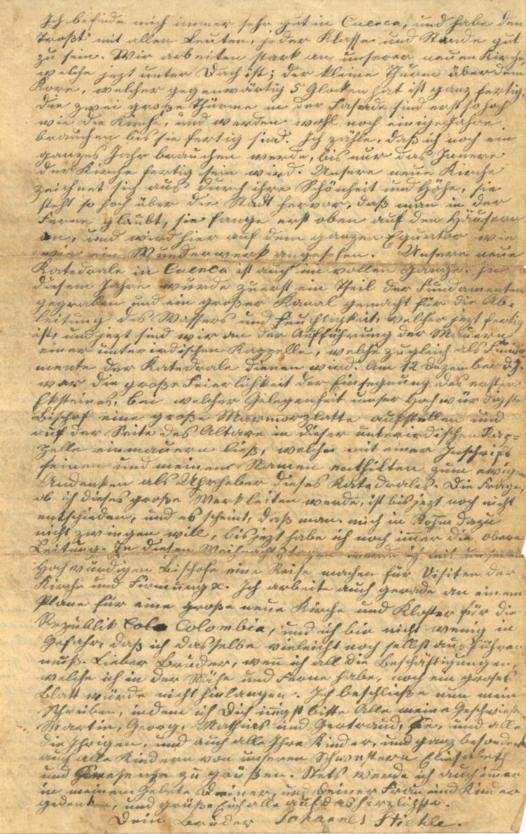 Ich befinde mich immer sehr gut in Cuenca, und habe den
Trost mit allen Leuten, jeder Klasse und Stande gut
zu sein. Wir arbeiten stark an unserer neuen Kirche,
welche jezt unter Dach ist; der kleine Thurm über dem
Kore, welcher gegenwärtig 5 Gloken hat ist ganz fertig.
Die zwei große Thürme in der Fasade sind erst so hoch
wie die Kirche und werden wohl noch einige Jahre
brauchen bis sie fertig sind. Ich zähle, daß ich noch ein
ganzes Jahr brauchen werde, bis nur das Innere
der Kirche fertig sein wird. Unsere neue Kirche
zeichnet sich aus durch ihre Schönheit und Höhe, sie
steht so hoch über die Stadt hervor, daß man in der
Ferne glaubt, sie fange erst oben auf den Häusern
an, und wird hier auf dem ganzen Equator
wie ein Wunderwerk angesehen. Unsere neue
Katedrale in Cuenca ist auch im vollen Gange. In
diesem Jahre wurde zuerst ein Theil der Fundamenten
gegraben und ein großer Kanal gemacht für die Ab-
leitung des Wassers und Feuchtigkeit, welcher jezt fertig
ist, und jezt sind wir an der Aufführung der Mauern
einer unterirdischen Kappelle, welche zugleich als Funda
mente der Katedrale dienen wird. Am 12 Dezember d. J.
war die große Feierlichkeit der Einsegnung des ersten
Ecksteines, bei welcher Gelegenheit unser Hochwürdigste
Bischof eine große Marmorplatte aufstellen und
auf der Seite des Altars in dieser unterirdischen Kap-
pelle einmauern ließ, welche mit einer Inschrift
seinen und meinen Namen enthilten zum ewigen
Andenken als Urheber dieses Katedrales. Die Frage,
ob ich dieses große Werk leiten werde, ist bis jezt noch nicht
entschieden, und es scheint, daß man mich in Rom dazu
nicht zwingen will, bis jezt habe ich noch imer die obere
Leitung. In diesen Weihnachtstagen werde ich mit unserem
Hochwürdigen Bischofe eine Reise machen für Visiten der
Kirche und Firmung x. Ich arbeite auch gerade an einem
Plane für eine große neue Kirche und Kloster für die
Republik Colo Colombia, und ich bin nicht wenig in
Gefahr, daß ich dasselbe vieleicht noch selbst ausführen
muß. Lieber Bruder, wen ich all die Beschäftigungen,
welche ich in der Nähe und Ferne habe, noch ein großes
Blatt würde nicht hinlangen. Ich beschließe nun mein
Schreiben, indem ich Dich innigst bitte Alle meine Geschwister
Martin, Georg, Mathias und Gertraud, und all
die Ihrigen, und auch alle Ihre Kinder, und ganz besonders
auch alle Kindern von unseren Schwestern Elisabeth
und zu grüßen. Stets werde ich auch imer
in meinem Gebete Deiner, und Deiner Frau und Kinder
gedenken, und grüße Euch alle auf das herzlichste.
Dein Bruder Johannes Stiehle.